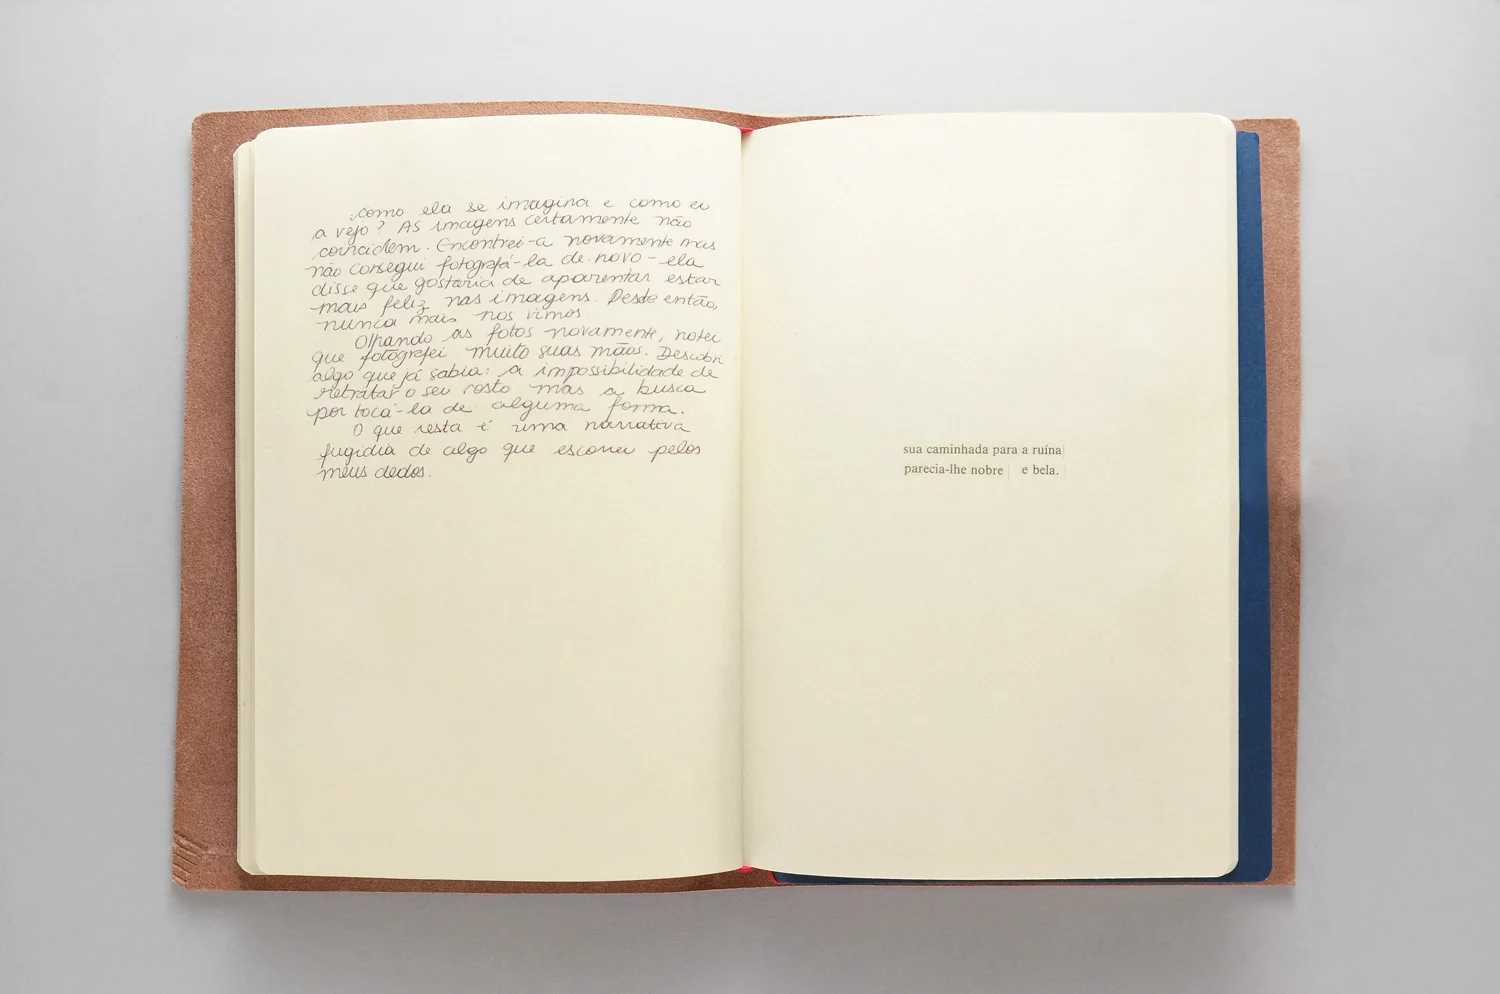 como ela se imagina e como eu
a vejo? As imagens certamente não
coincidem. Encontrei-a novamente mas
não consegui fotografá-la de novo - ela
disse que gostaria de aparentar estar
mais feliz nas imagens. Desde então,
nunca mais nos vimos
Olhando as fotos novamente, notei
que fotografei muito suas mãos. Descobri
algo que já sabia: a impossibilidade de
retratar o seu rosto mas a busca
por tocá-la de alguma forma.
O que resta é uma narrativa
fugidia de algo que escorreu pelos
meus dedos.
sua caminhada para a ruína
parecia-lhe nobre e bela.